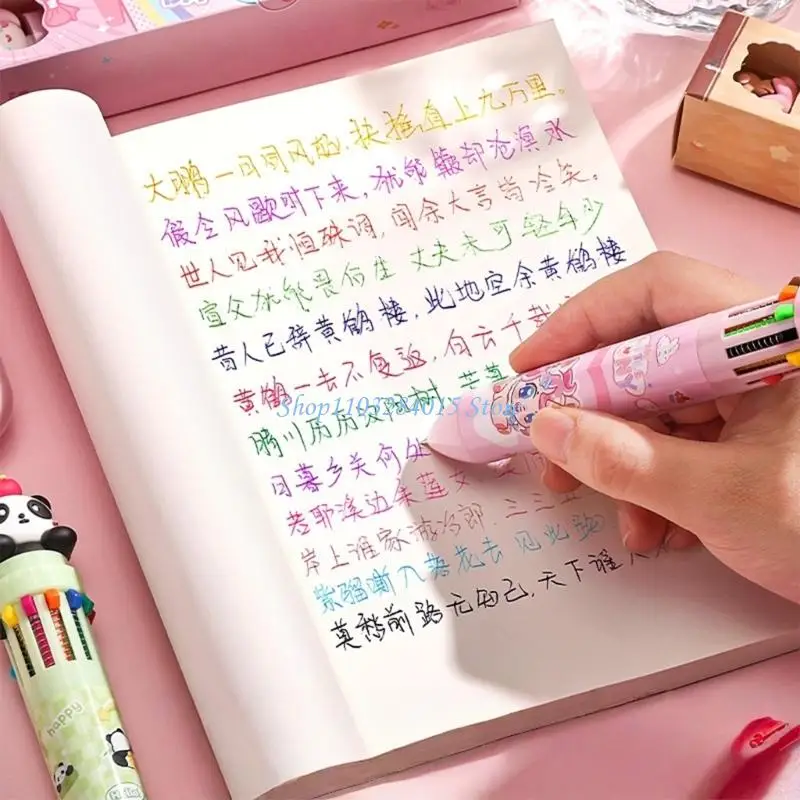 大鹏一日同风起，扶摇直上九万里。
假令风歇时下来，犹能簸却沧溟水
世人见我恒殊调，闻余大言皆冷笑。
宣父犹能畏后生 丈夫未可轻年少
昔人已辞黄鹤楼，此地空余黄鹤楼
黄鹤一去不复返，白云千载
晴川历历汉阳树，芳草
日暮乡关何处
若耶溪边采莲女
岸上谁家游冶郎．三三五
紫骝嘶入落花去 见此踟
莫愁前路无知己，天下谁人
Shop1103284015 Store
happy
Hello